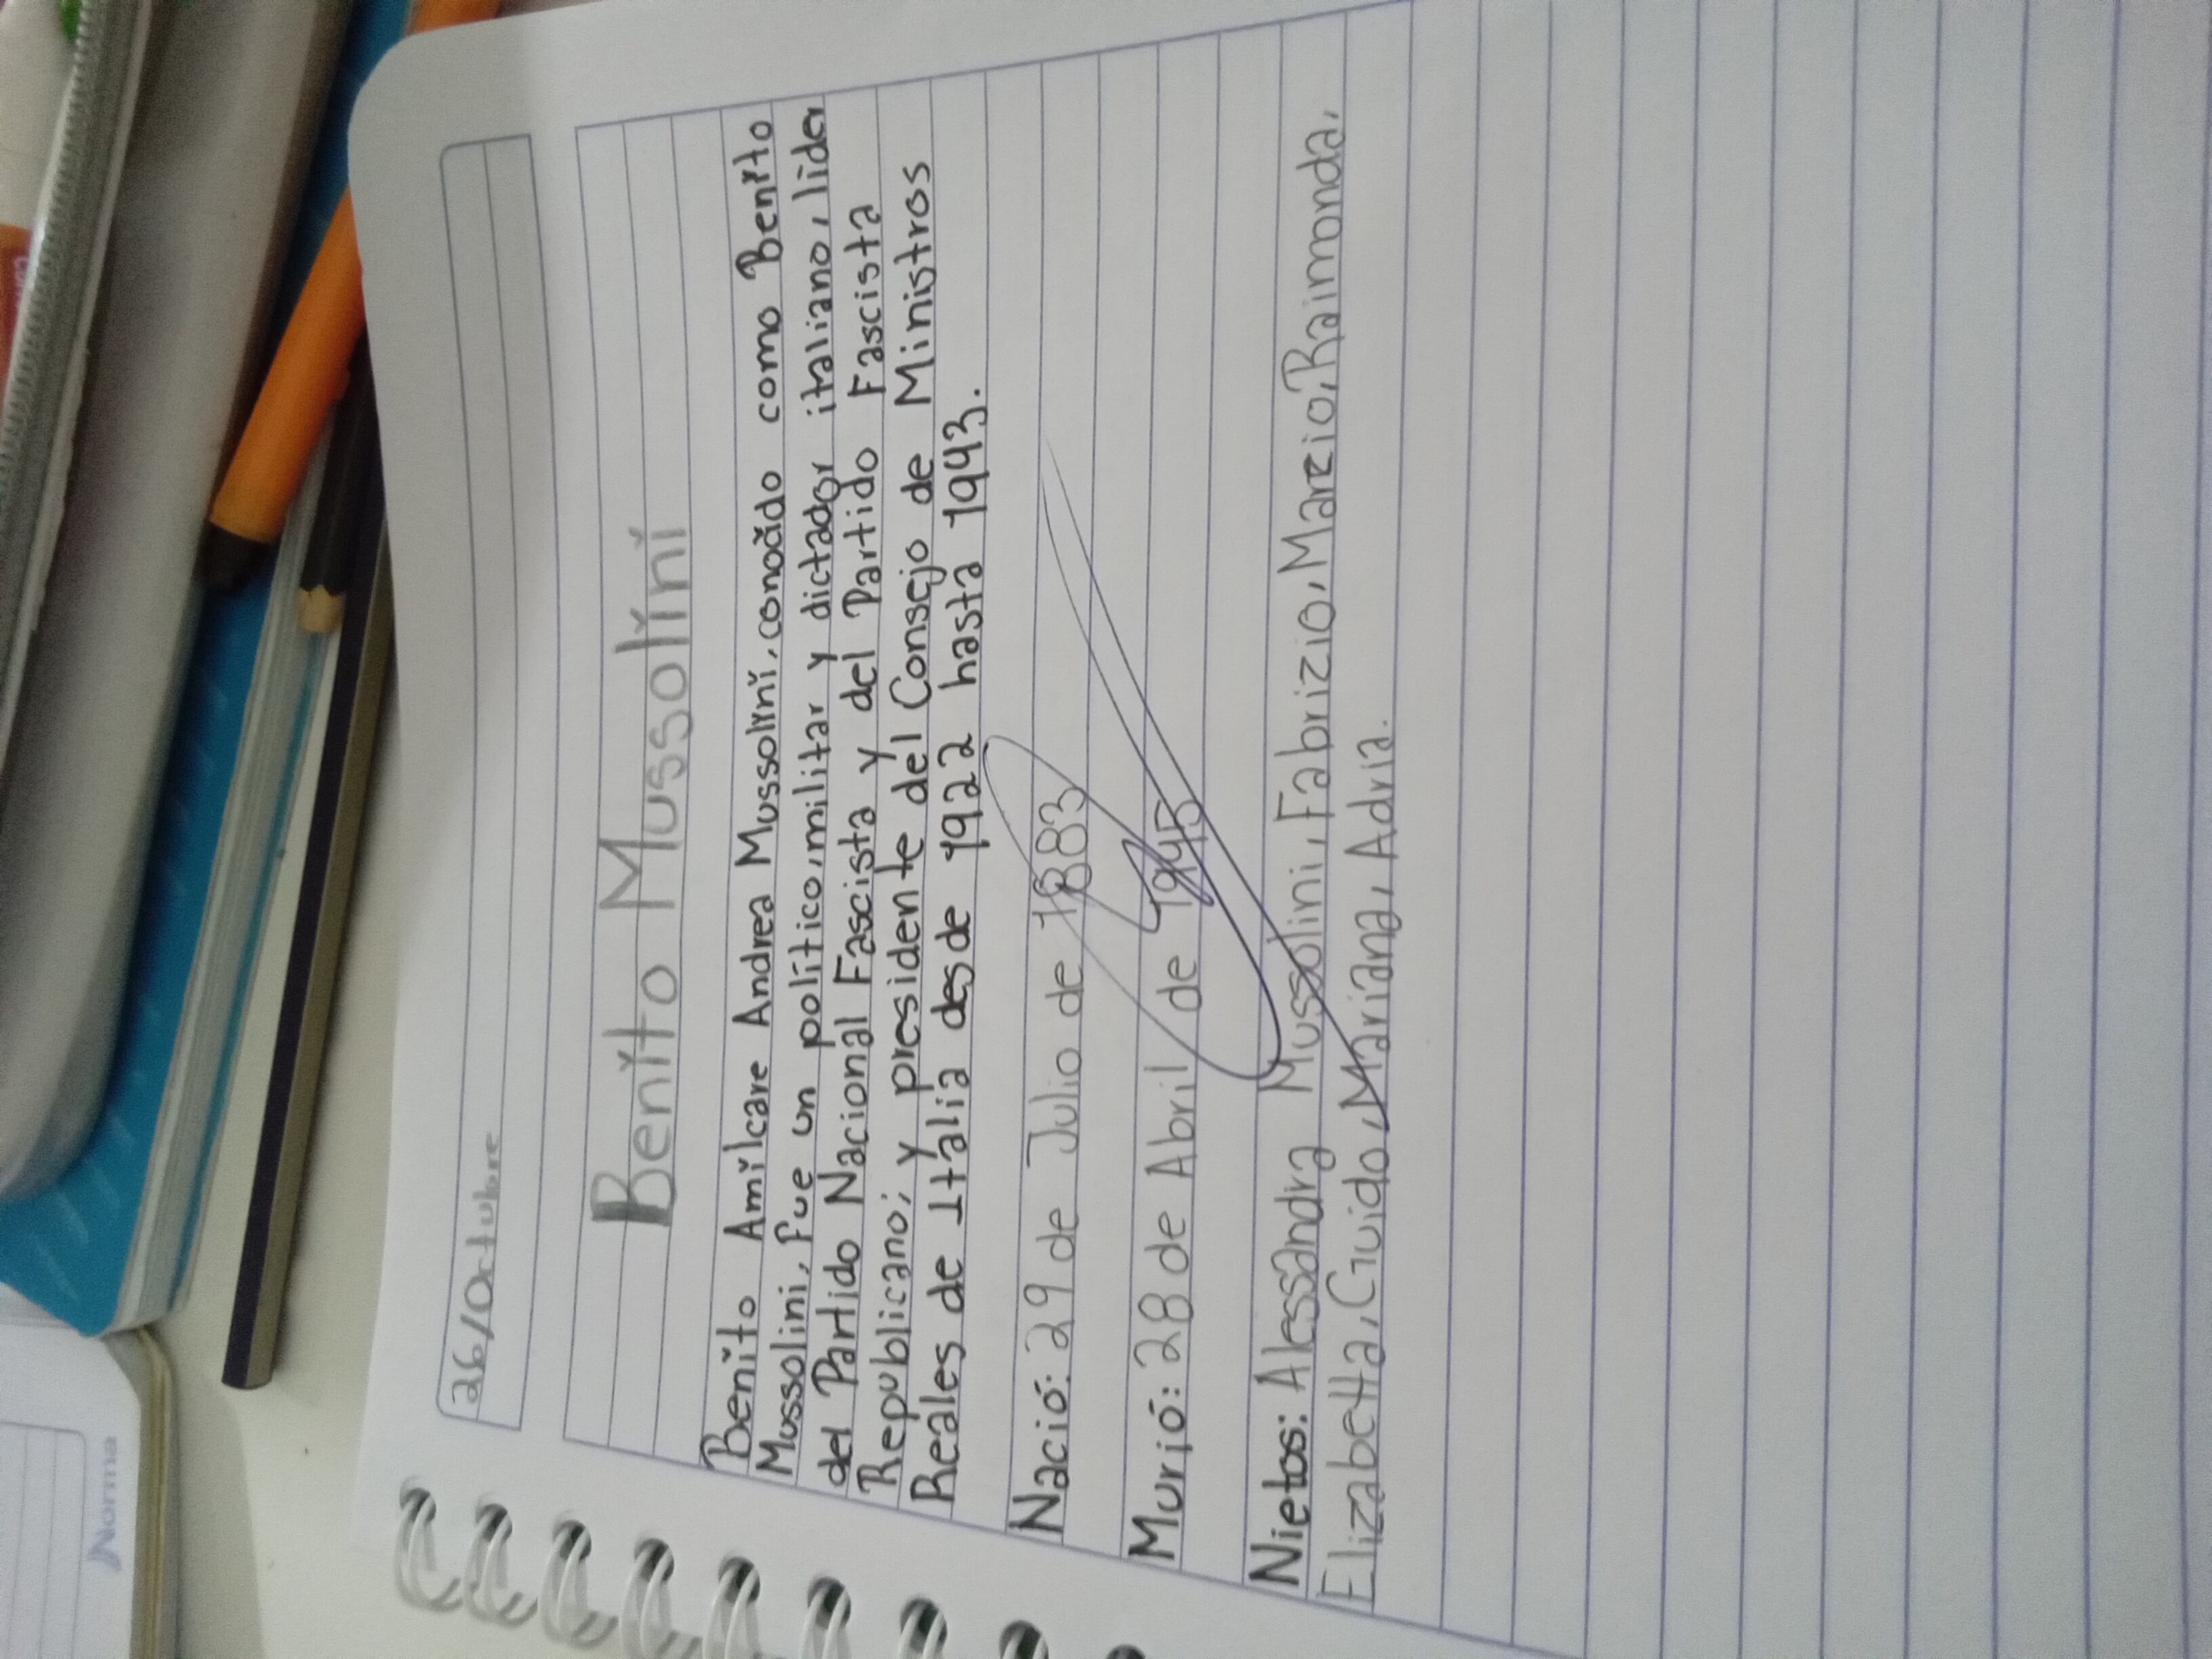 26/Octubre
Benito Mussolini
Benito Amilcare Andrea Mussolini, conocido como Benito
Mussolini, fue un político, militar y dictador italiano, lider
del Partido Nacional Fascista y del Partido Fascista
Republicano; y presidente del Consejo de Ministros
Reales de Italia desde 1922 hasta 1943.
Nació: 29 de Julio de 1883
Murió: 28 de Abril de 1945
Nietos: Alessandra Mussolini, Fabrizio, Marzio, Raimonda,
Elizabetta, Guido, Mariana, Adria.
Norma